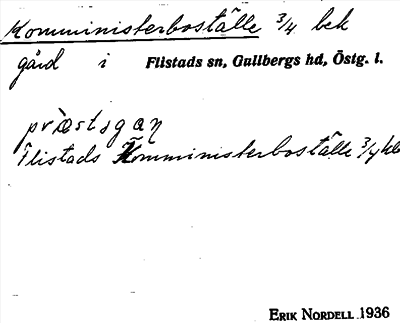 Komministerboställe 3/4 bck
gård i Flistads sn, Gullbergs hd, Östg. l.
Flistads Komministerboställe 3/4
ERIK NORDELL 1936